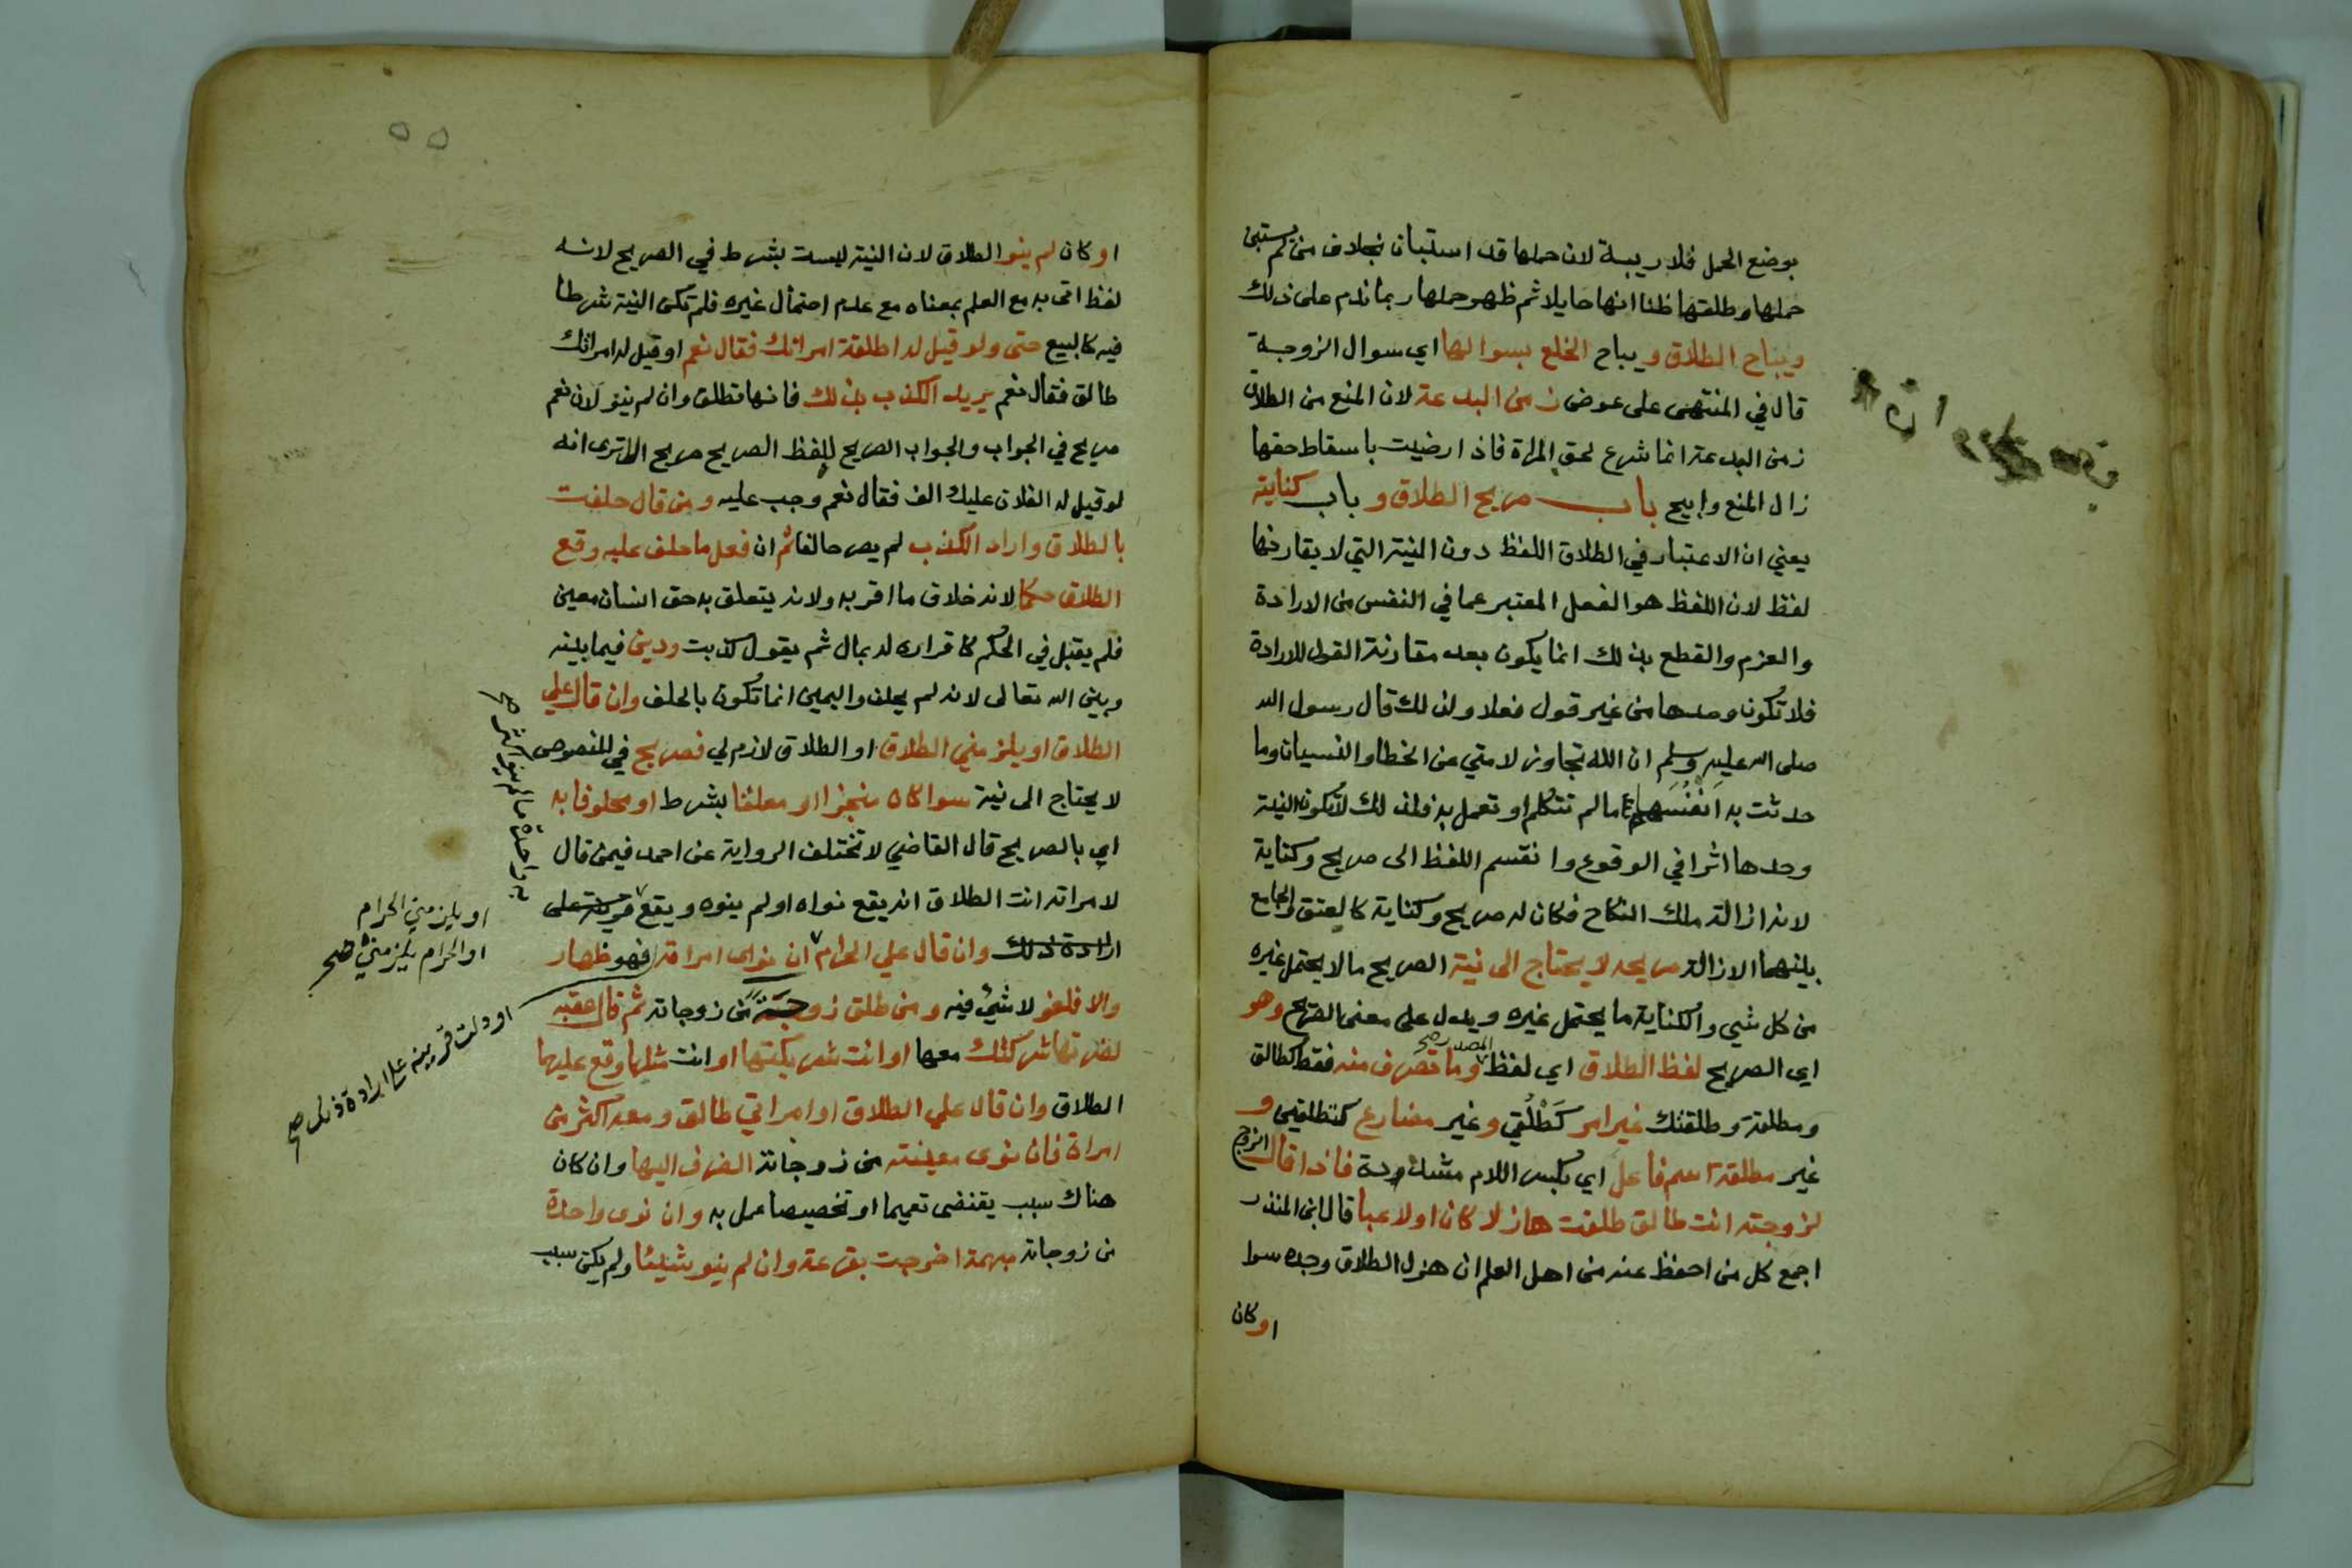 بوضع الحمل فلا ريبة لان حملها قد استبان بخلاف من لم يستبن
حملها وطلقها ظنا انها حايلا ثم ظهر حملها ربما ندم على ذلك
ويباح الطلاق ويباح الخلع بسوالها اي سوال الزوجة
قال في المنتهى على عوض زمن البدعة لان المنع من الطلاق
زمن البدعة انما شرع لحق المراة فاذا رضيت باسقاط حقها
زال المنع وابيح باب صريح الطلاق و باب كنايته
يعني ان الاعتبار في الطلاق اللفظ دون النية التي لا يقارنها
لفظ لان اللفظ هو الفعل المعتبر عما في النفس من الارادة
والعزم والقطع بذلك انما يكون بعد مقارنة القول للارادة
فلا تكون وحدها من غير قول فعلا ولذلك قال رسول الله
صلى الله عليه وسلم ان الله تجاوز لامتي عن الخطا والنسيان وما
حدثت به انفسها ما لم تتكلم او تعمل به فلذلك لا تكون النية
وحدها اثرا في الوقوع وانقسم اللفظ الى صريح وكناية
لانه ازالة ملك النكاح فكان له صريح وكناية كالعتق والجامع
بينهما الازالة صريحه لا يحتاج الى نية الصريح ما لا يحتمل غيره
من كل شي والكناية ما يحتمل غيره ويدل على معنى الصريح وهو
اي الصريح لفظ الطلاق اي لفظ المصدر صح وما تصرف منه فقط كطالق
ومطلقة وطلقتك غير امر كطلقي وغير مضارع كتطلقين و
غير مطلقة اسم فاعل اي بكسر اللام مشددة فاذا قال الزوج
لزوجته انت طالق طلقت هازلا كان او لاعبا قال ابن المنذر
اجمع كل من احفظ عنه من اهل العلم ان هزل الطلاق وجده سوا
او كان
٥٥
او كان لم ينو الطلاق لان النية ليست بشرط في الصريح لانه
لفظ اتى به مع العلم بمعناه مع عدم احتمال غيره فلم تكن النية شرطا
فيه كالبيع حتى ولو قيل له اطلقة امراتك فقال نعم او قيل له امراتك
طالق فقال نعم يريد الكذب بذلك فانها تطلق وان لم ينو لان نعم
صريح في الجواب والجواب الصريح للفظ الصريح صريح الا ترى انه
لو قيل له الفلان عليك الف فقال نعم وجب عليه ومن قال حلفت
بالطلاق واراد الكذب لم يصر حالفا ثم ان فعل ما حلف عليه وقع
الطلاق حكما لانه خلاف ما اقر به ولانه يتعلق به حق انسان معين
فلم يقبل في الحكم كاقراره له بمال ثم يقول كذبت ودين فيما بينه
وبين الله تعالى لانه لم يحلف واليمين انما تكون بالحلف وان قال علي
الطلاق او يلزمني الطلاق او الطلاق لازم لي فصريح في المنصوص
لا يحتاج الى نية سوا كان منجزا او معلقا بشرط او محلوفا به
اي بالصريح قال القاضي لا تختلف الرواية عن احمد فيمن قال
لامراته انت الطلاق انه يقع نواه او لم ينوه ويقع على
ارادة ذلك وان قال علي الحرام ان نوى امراته فهو ظهار
والا فلغو لا شي فيه ومن طلق زوجة من زوجاته ثم قال عقبه
لضرتها شركتك معها او انت شريكتها او انت مثلها وقع عليهما
الطلاق وان قال علي الطلاق او امراتي طالق ومعه اكثر من
امراة فان نوى معينته من زوجاته انصرف اليها وان كان
هناك سبب يقتضى تعميما او تخصيصا عمل به وان نوى واحدة
من زوجاته مبهمة اخرجت بقرعة وان لم ينو شيئا ولم يكن سبب
به واحدة ما لم ينو اكثر صح
او يلزمني الحرام
او الحرام يلزمني صح
او دلت قرينة على ارادة ذلك صح